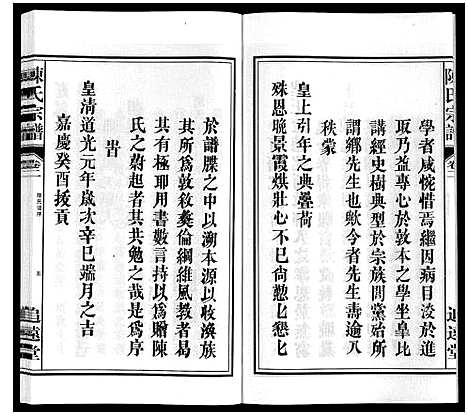 陳氏宗譜
卷一
追遠堂
學者咸惋惜焉繼因病目淡於進
取乃益專心於敦本之學坐皐比
講經史樹典型於宗族間歟所
謂鄉先生也歟今者先生壽逾八
秩蒙
皇上引年之典疊荷
殊恩晚景霞烘壯心不已尚懃匕懇匕
於譜牒之中以溯本源以收渙族
其所為敦敘奠倫綱維風教者曷
其有極耶用書數言持以為贈陳
氏之蔚起者其共勉之哉是為序
旹
皇清道光元年歲次辛巳端月之吉
嘉慶癸酉拔貢
陳氏宗譜
卷一
追遠堂